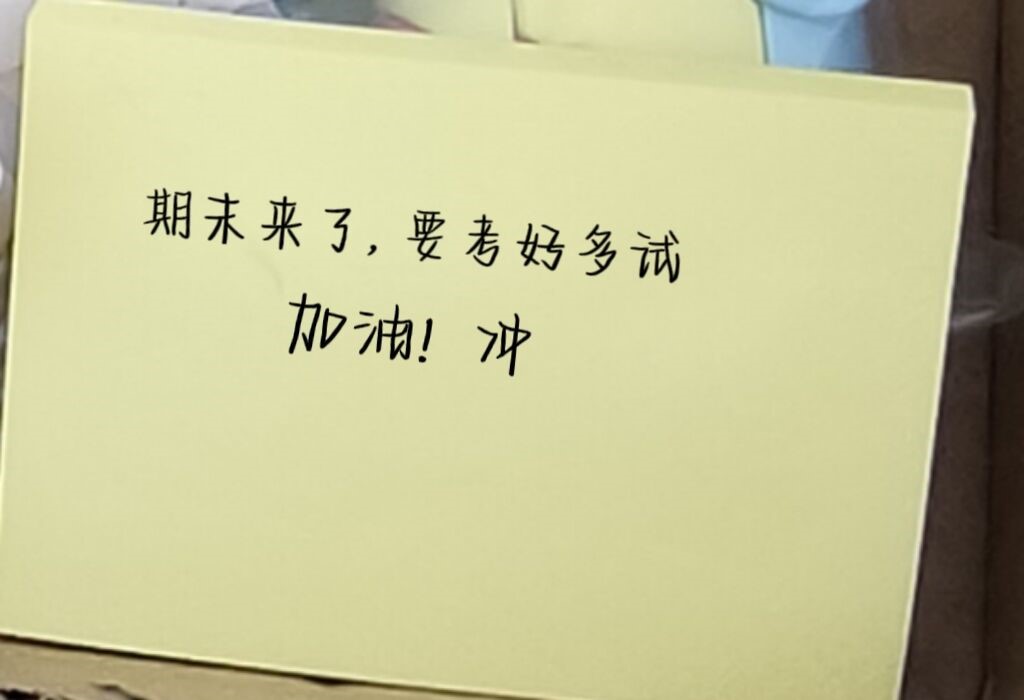 期末来了,要考好多试
加油!冲